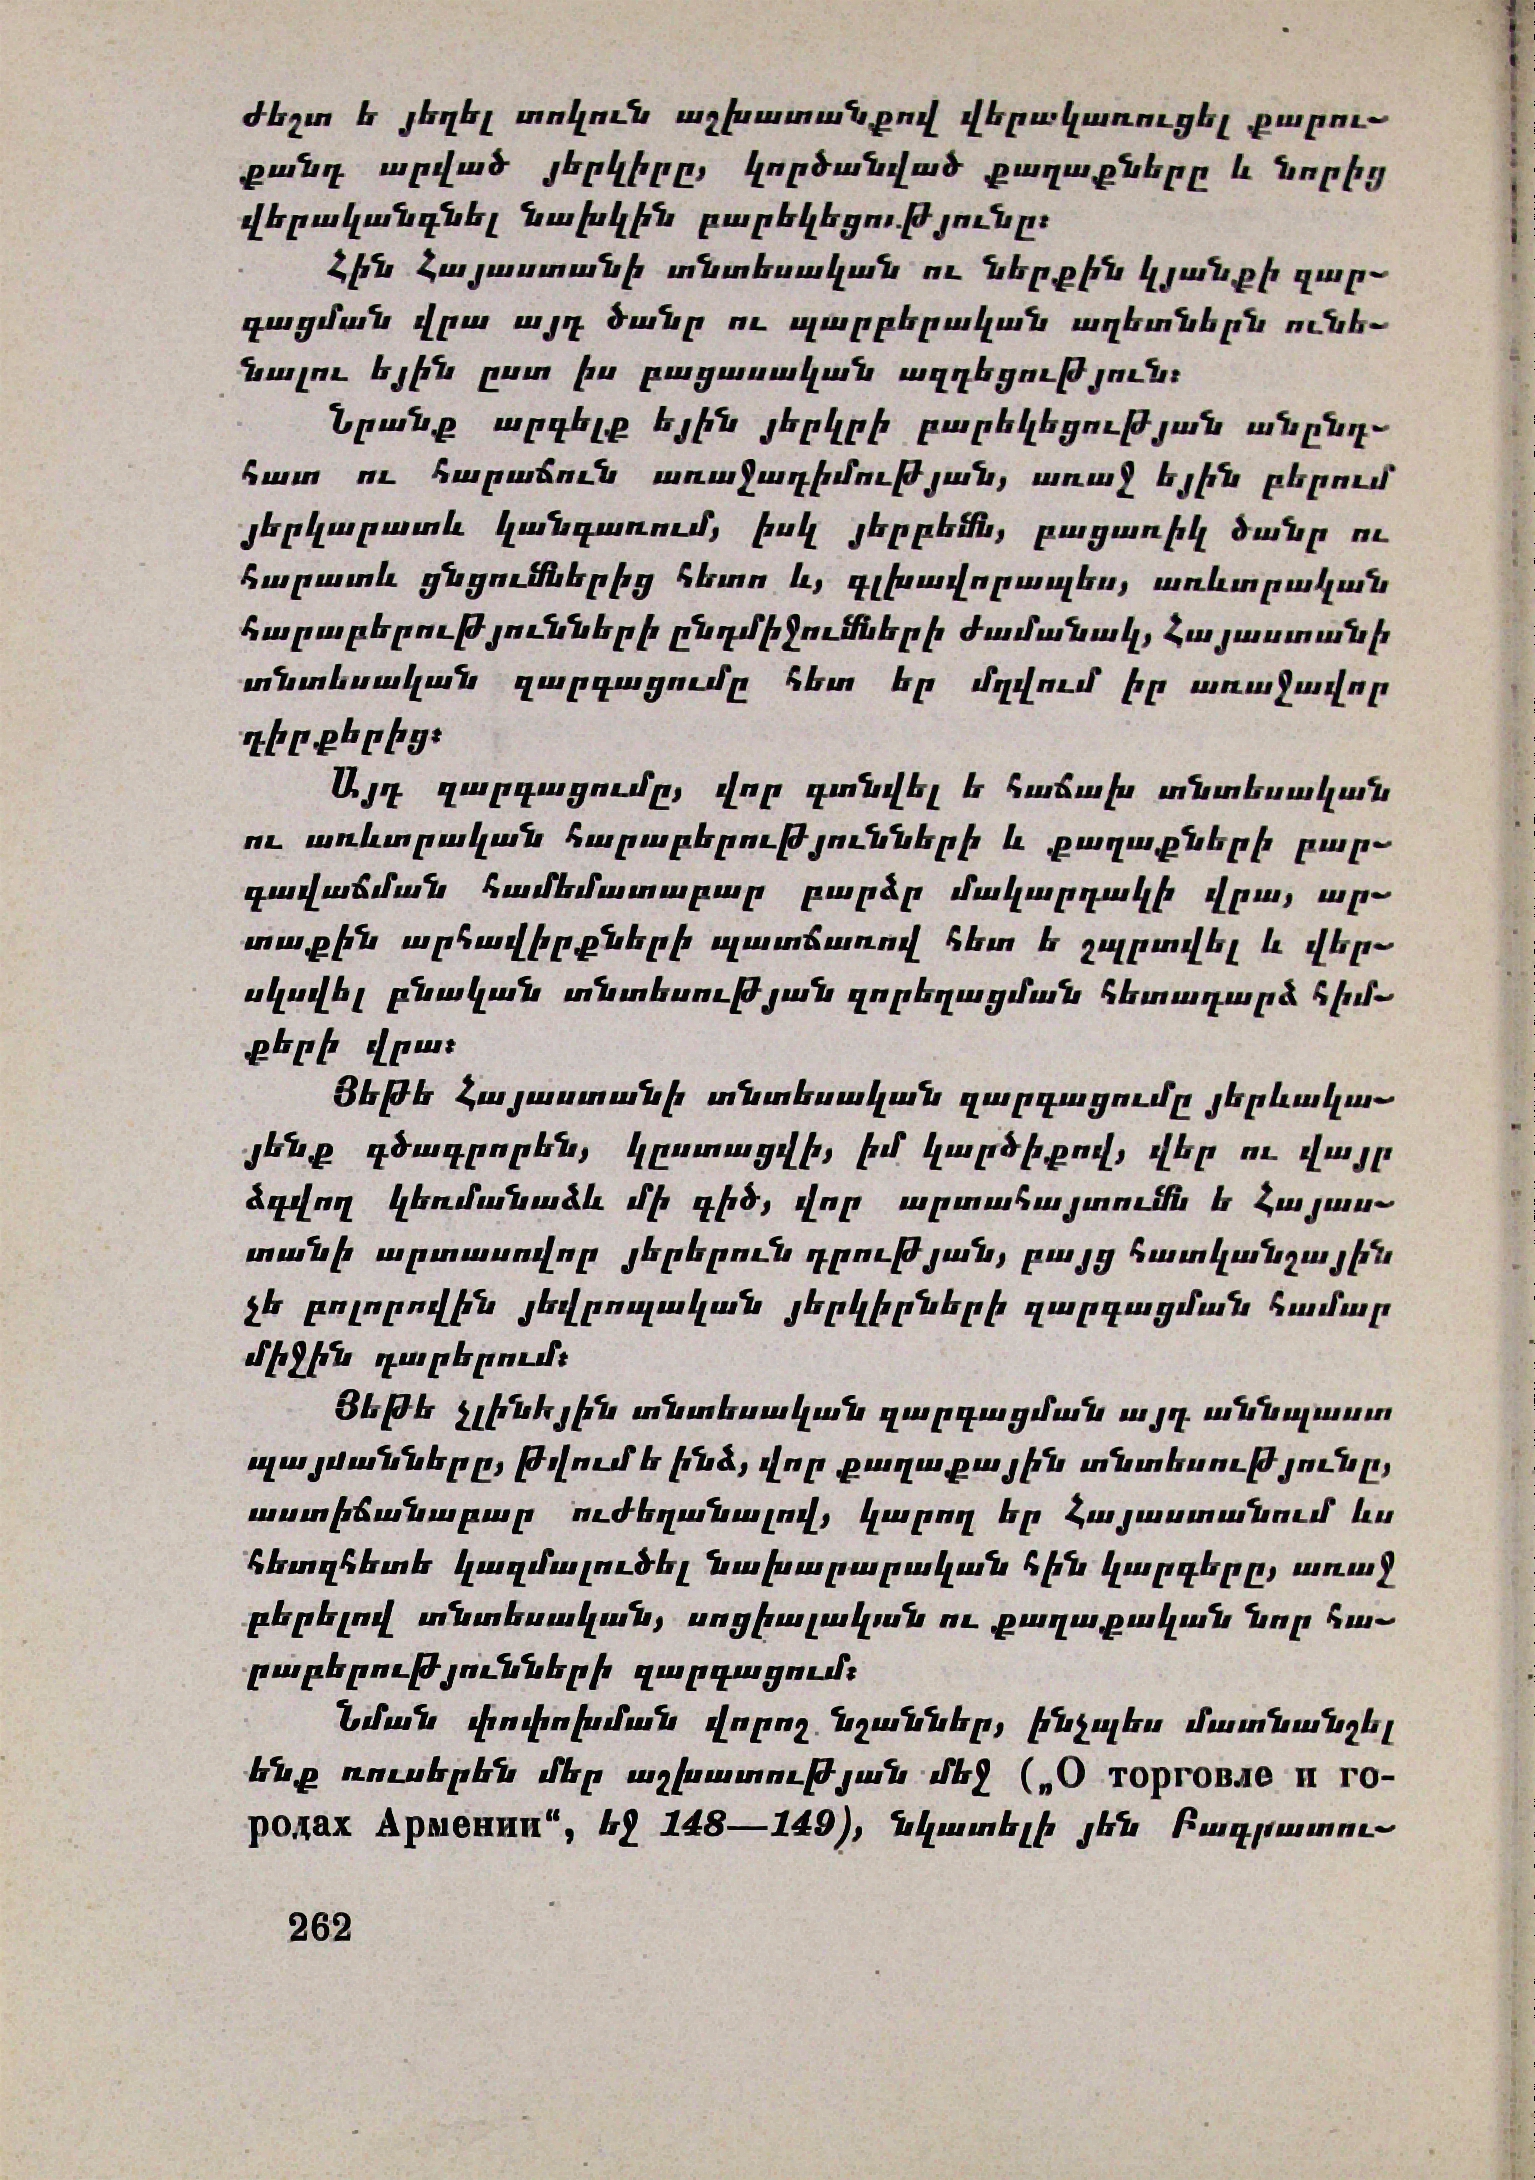 ժեշտ ե յեղել տոկուն աշխատանքով վերակառուցել քարու֊
քանդ արված յերկիրը, կործանված քաղաքները և նորից
վերականգնել նախկին բարեկեցությունը։
Հին Հայաստանի տնտեսական ու ներքին կյանքի զար֊
գացման վրա այդ ծանր ու պարբերական աղետներն ունե֊
նալու եյին ըստ իս բացասական ազդեցություն։
Նրանք արգելք եյին յերկրի բարեկեցության անընդ֊
հատ ու հարաճուն առաջադիմության, առաջ եյին բերում
յերկարատև կանգառում, իսկ յերբեմն, բացառիկ ծանր ու
հարատև ցնցումներից հետո և, գլխավորապես, առևտրական
հարաբերությունների ընդմիջումների ժամանակ, Հայաստանի
տնտեսական զարգացումը հետ եր մղվում իր առաջավոր
դիրքերից։
Այդ զարգացումը, վոր գտնվել ե հաճախ տնտեսական
ու առևտրական հարաբերությունների և քաղաքների բար֊
գավաճման համեմատաբար բարձր մակարդակի վրա, ար֊
տաքին արհավիրքների պատճառով հետ ե շպրտվել և վեր֊
սկսվել բնական տնտեսության զորեղացման հետադարձ հիմ֊
քերի վրա։
Յեթե Հայաստանի տնտեսական զարգացումը յերևակա֊
յենք գծագրորեն, կըստացվի, իմ կարծիքով, վեր ու վայր
ձգվող կեռմանաձև մի գիծ, վոր արտահայտումն ե Հայաս֊
տանի արտասովոր յերերուն դրության, բայց հատկանշային
չե բոլորովին յեվրոպական յերկիրների զարգացման համար
միջին դարերում։
Յեթե չլինեյին տնտեսական զարգացման այդ աննպաստ
պայմանները, թվում ե ինձ, վոր քաղաքային տնտեսությունը,
աստիճանաբար ուժեղանալով, կարող եր Հայաստանում ևս
հետզհետե կազմալուծել նախարարական հին կարգերը, առաջ
բերելով տնտեսական, սոցիալական ու քաղաքական նոր հա֊
րաբերությունների զարգացում։
Նման փոփոխման վորոշ նշաններ, ինչպես մատնանշել
ենք ռուսերեն մեր աշխատության մեջ („О торговле и го-
родах Армении“, եջ 148—149), նկատելի յեն Բագրատու֊
262